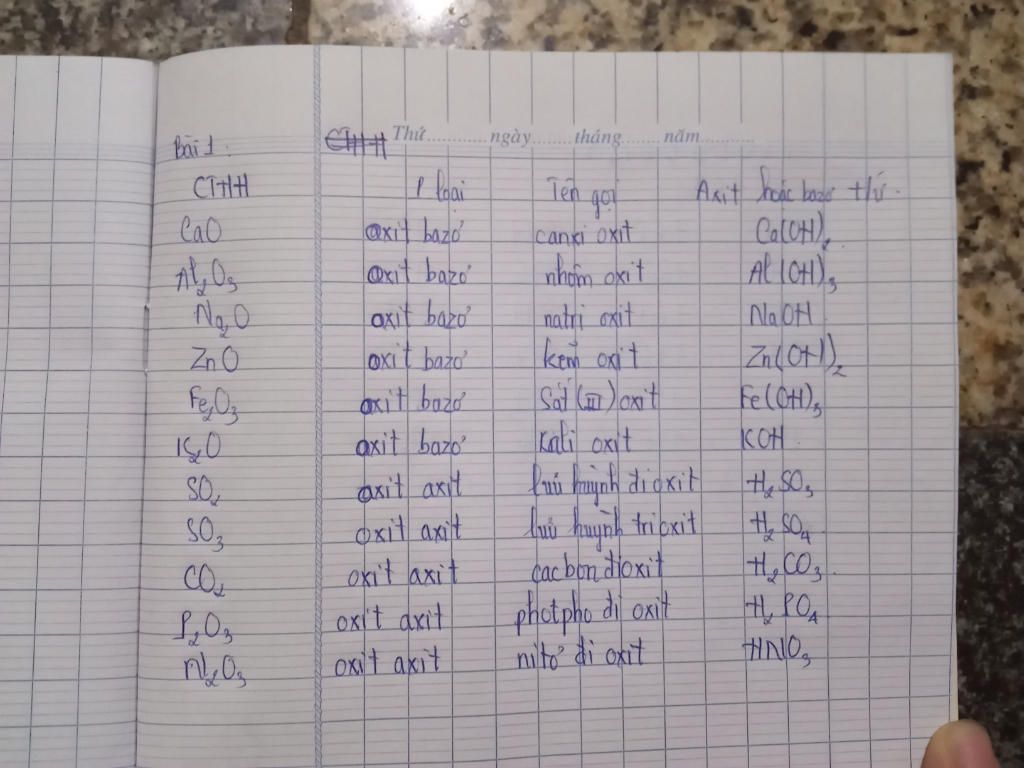 Thứ............ngày........tháng........năm...........
Bài 1:
CTHH P loại Tên gọi Axit hoặc bazơ t/ứ.
CaO oxit bazơ canxi oxit Ca(OH)₂
Al₂O₃ oxit bazơ nhôm oxit Al(OH)₃
Na₂O oxit bazơ natri oxit NaOH
ZnO oxit bazơ kẽm oxit Zn(OH)₂
Fe₂O₃ oxit bazơ Sắt (III) oxit Fe(OH)₃
K₂O oxit bazơ Kali oxit KOH
SO₂ oxit axit lưu huỳnh đi oxit H₂SO₃
SO₃ oxit axit lưu huỳnh tri oxit H₂SO₄
CO₂ oxit axit cacbon đioxit H₂CO₃.
P₂O₃ oxit axit photpho đi oxit H₂PO₄
N₂O₃ oxit axit nitơ đi oxit HNO₃